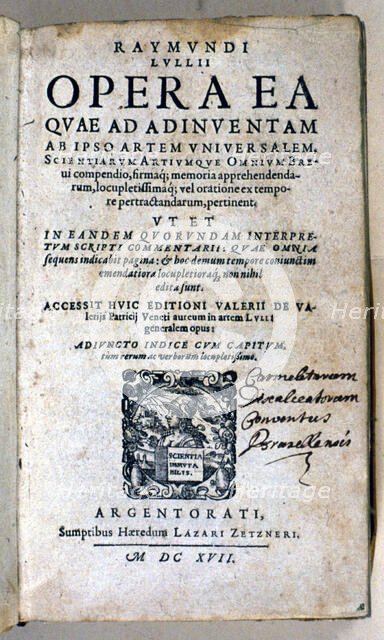 RAYMVNDI
LVLLII
OPERA EA
QVAE AD ADINVENTAM
AB IPSO ARTEM VNIVERSALEM,
SCIENTIARVM ARTIVMQVE OMNIVM BRE-
ui compendio, firmaq; memoria apprehendenda-
rum, locupletissimaq; vel oratione ex tempo-
re pertractandarum, pertinent.
VT ET
IN EANDEM QVORVNDAM INTERPRE-
TVM SCRIPTI COMMENTARII: QVAE OMNIA
sequens indicabit pagina: & hoc demum tempore coniunctim
emendatiora locupletioraq, non nihil
edita sunt.
ACCESSIT HVIC EDITIONI VALERII DE VA-
lerijs Patricij Veneti aureum in artem LVLLI
generalem opus:
ADIVNCTO INDICE CVM CAPITVM,
tum rerum ac verborum locupletissimo.
Carmelitarum
discalceatorum
Conventus
Bruxellensis
SCIENTIA
IMMVTA
BILIS.
ARGENTORATI,
Sumptibus Hæredum LAZARI ZETZNERI.
M DC XVII.
Heritage